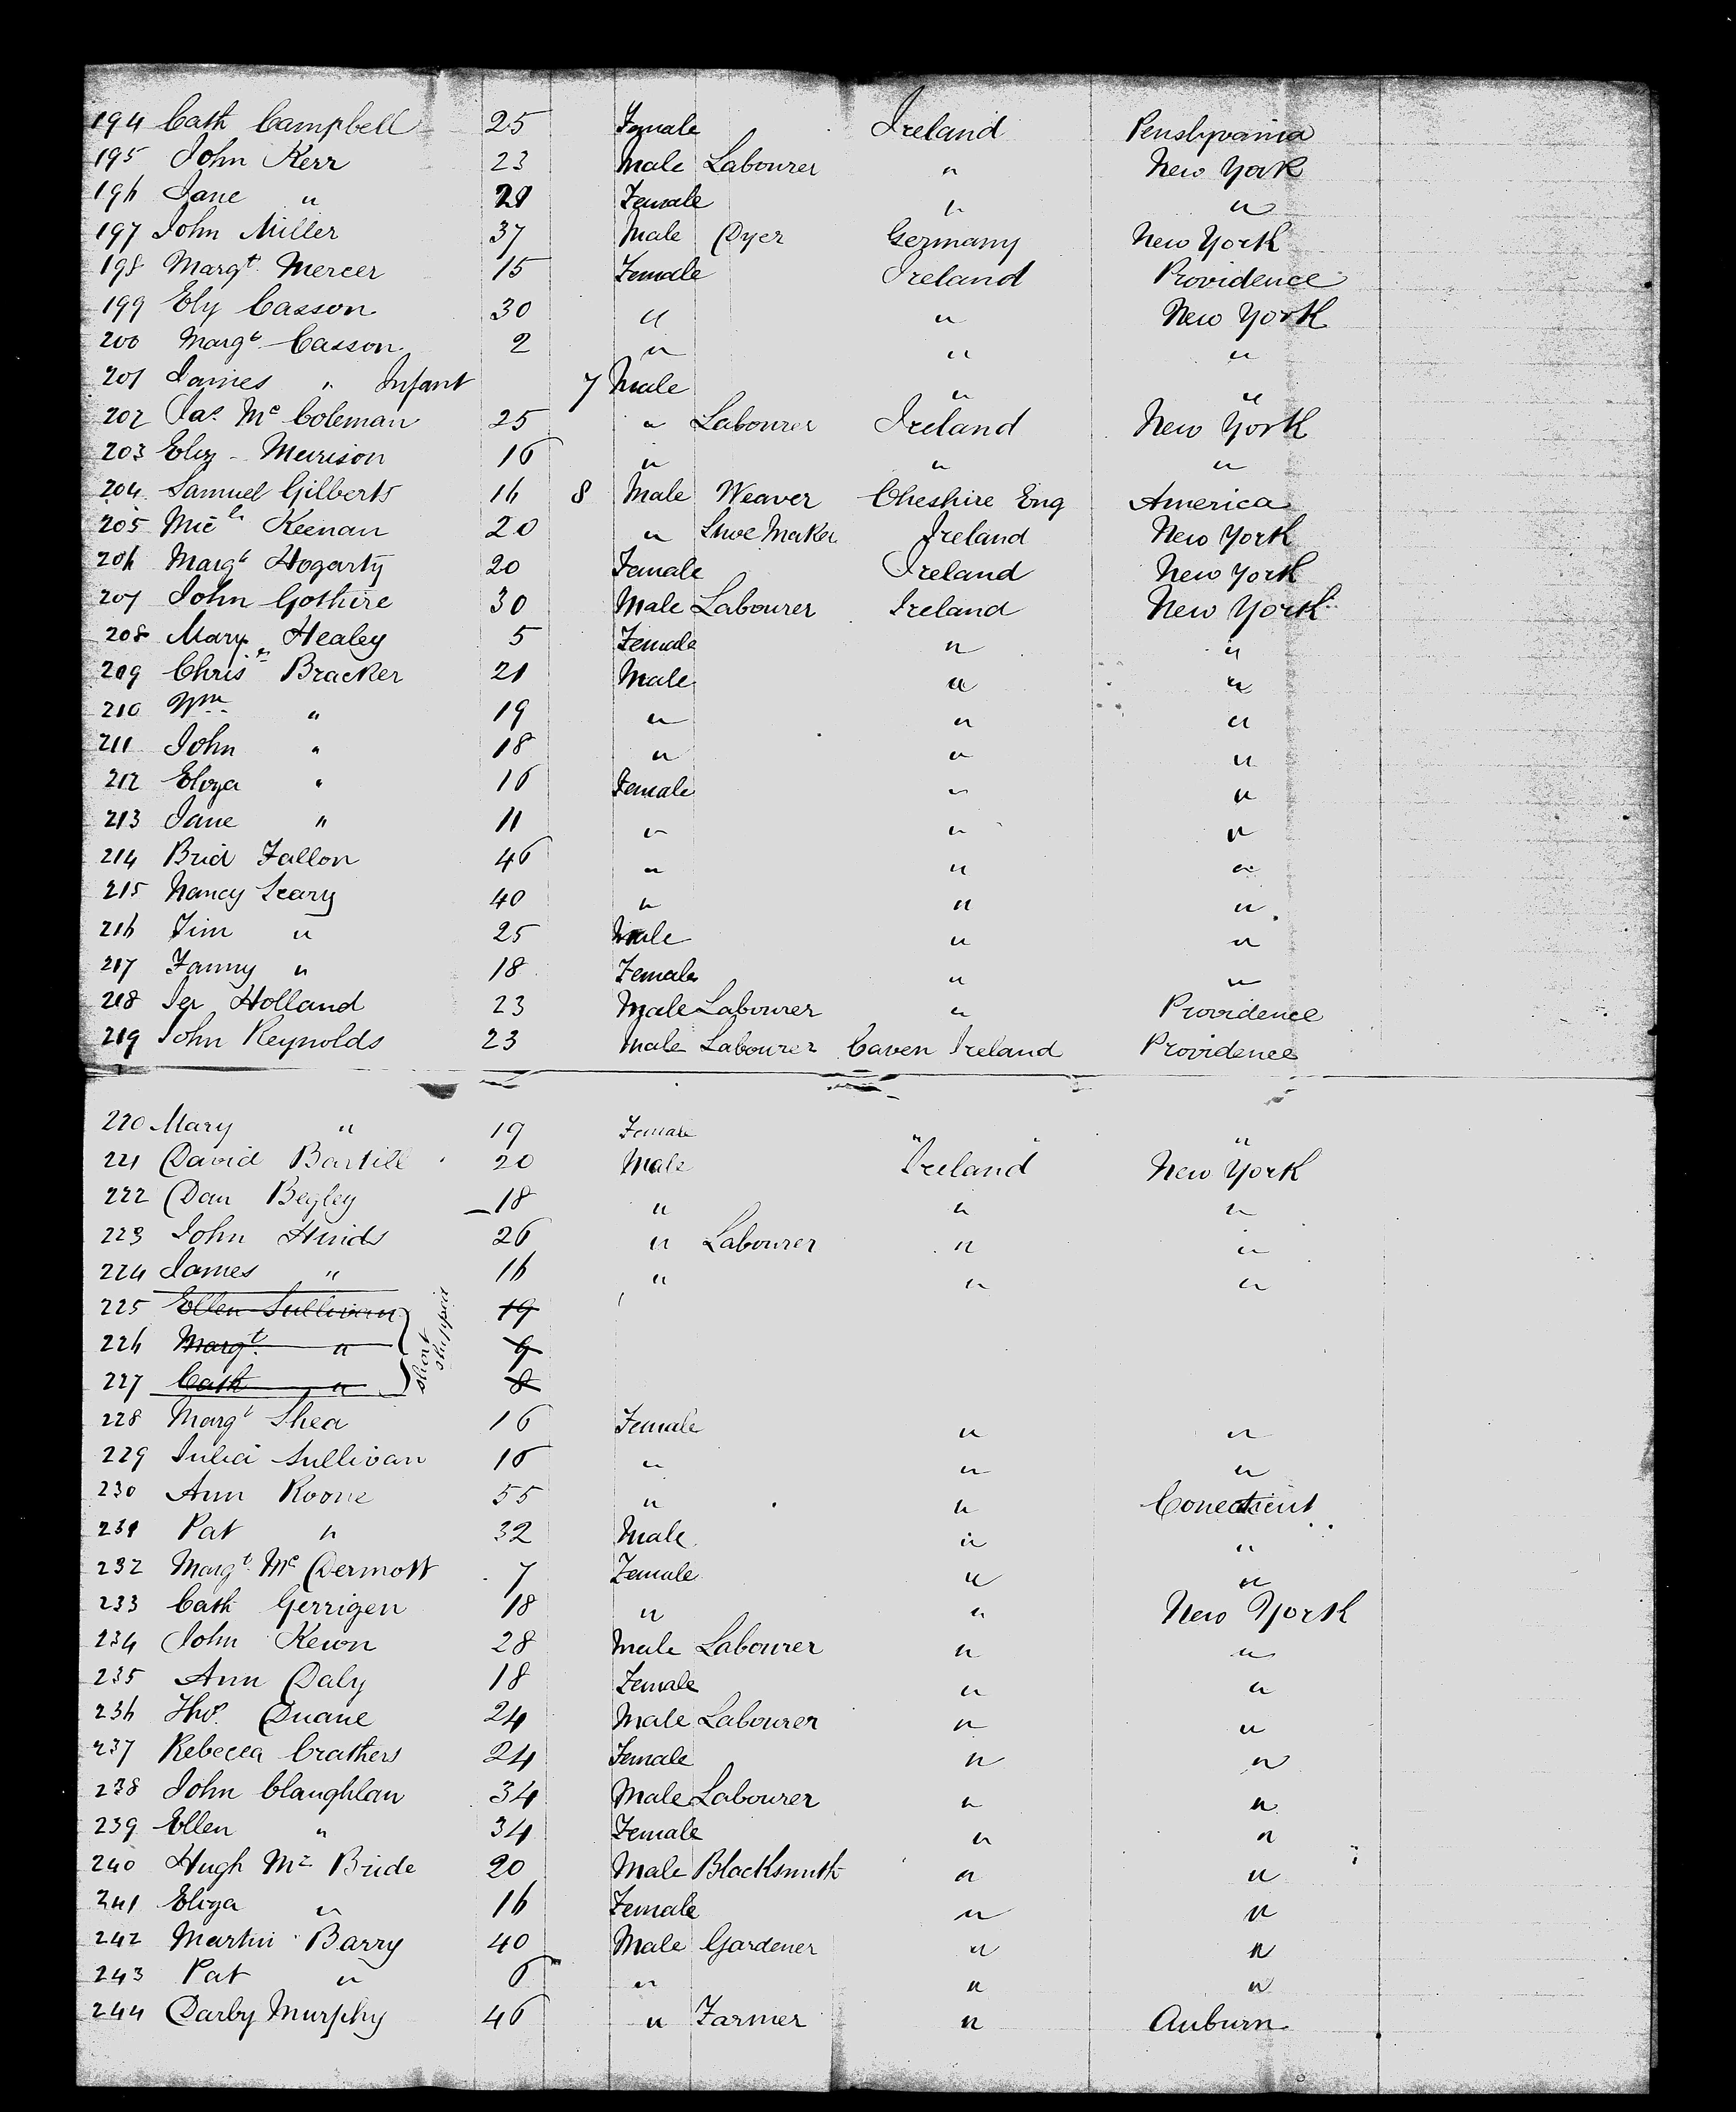 194 Cath Campbell 25 Female Ireland Penslyvania
195 John Kerr 23 Male Labourer " New York
196 Jane " 29 Female " "
197 John Miller 37 Male Dyer Germany New York
198 Margt. Mercer 15 Female Ireland Providence
199 Ely Casson 30 " " New York
200 Margt Casson 2 " " "
201 James " Infant 7 Male " "
202 Jas. Mc Coleman 25 " Labourer Ireland New York
203 Eliz Murison 16 " " "
204 Samuel Gilberts 16 8 Male Weaver Cheshire Eng America
205 Micl Keenan 20 " Shoe Maker Ireland New York
206 Margt Hogarty 20 Female Ireland New York
207 John Gothire 30 Male Labourer Ireland New York
208 Mary Healey 5 Female " "
209 Chrisr Bracker 21 Male " "
210 Wm " 19 " " "
211 John " 18 " " "
212 Eliza " 16 Female " "
213 Jane " 11 " " "
214 Brid Fallon 46 " " "
215 Nancy Seary 40 " " "
216 Tim " 25 Male " "
217 Fanny " 18 Female " "
218 Jer Holland 23 Male Labourer " Providence
219 John Reynolds 23 Male Labourer Caven Ireland Providence
220 Mary " 19 Female " " "
221 David Bartill 20 Male Ireland New York
222 Dan Begley 18 " " "
223 John Hinds 26 " Labourer " "
224 James " 16 " " "
225 Ellen Sullivan 19
226 Margt. " 9 short shipped
227 Cath " 8
228 Margt Shea 16 Female " "
229 Julia Sullivan 16 " " "
230 Ann Roone 55 " " Conecticut
231 Pat " 32 Male " "
232 Margt. Mc Dermott 7 Female " "
233 Cath Gerrigen 18 " " New York
234 John Kewn 28 Male Labourer " "
235 Ann Daly 18 Female " "
236 Thos. Duane 24 Male Labourer " "
237 Rebecca Crathers 24 Female " "
238 John Claughlan 34 Male Labourer " "
239 Ellen " 34 Female " "
240 Hugh Mc Bride 20 Male Blacksmith " "
241 Eliza " 16 Female " "
242 Martin Barry 40 Male Gardener " "
243 Pat " 6 " " "
244 Darby Murphy 46 " Farmer " Auburn